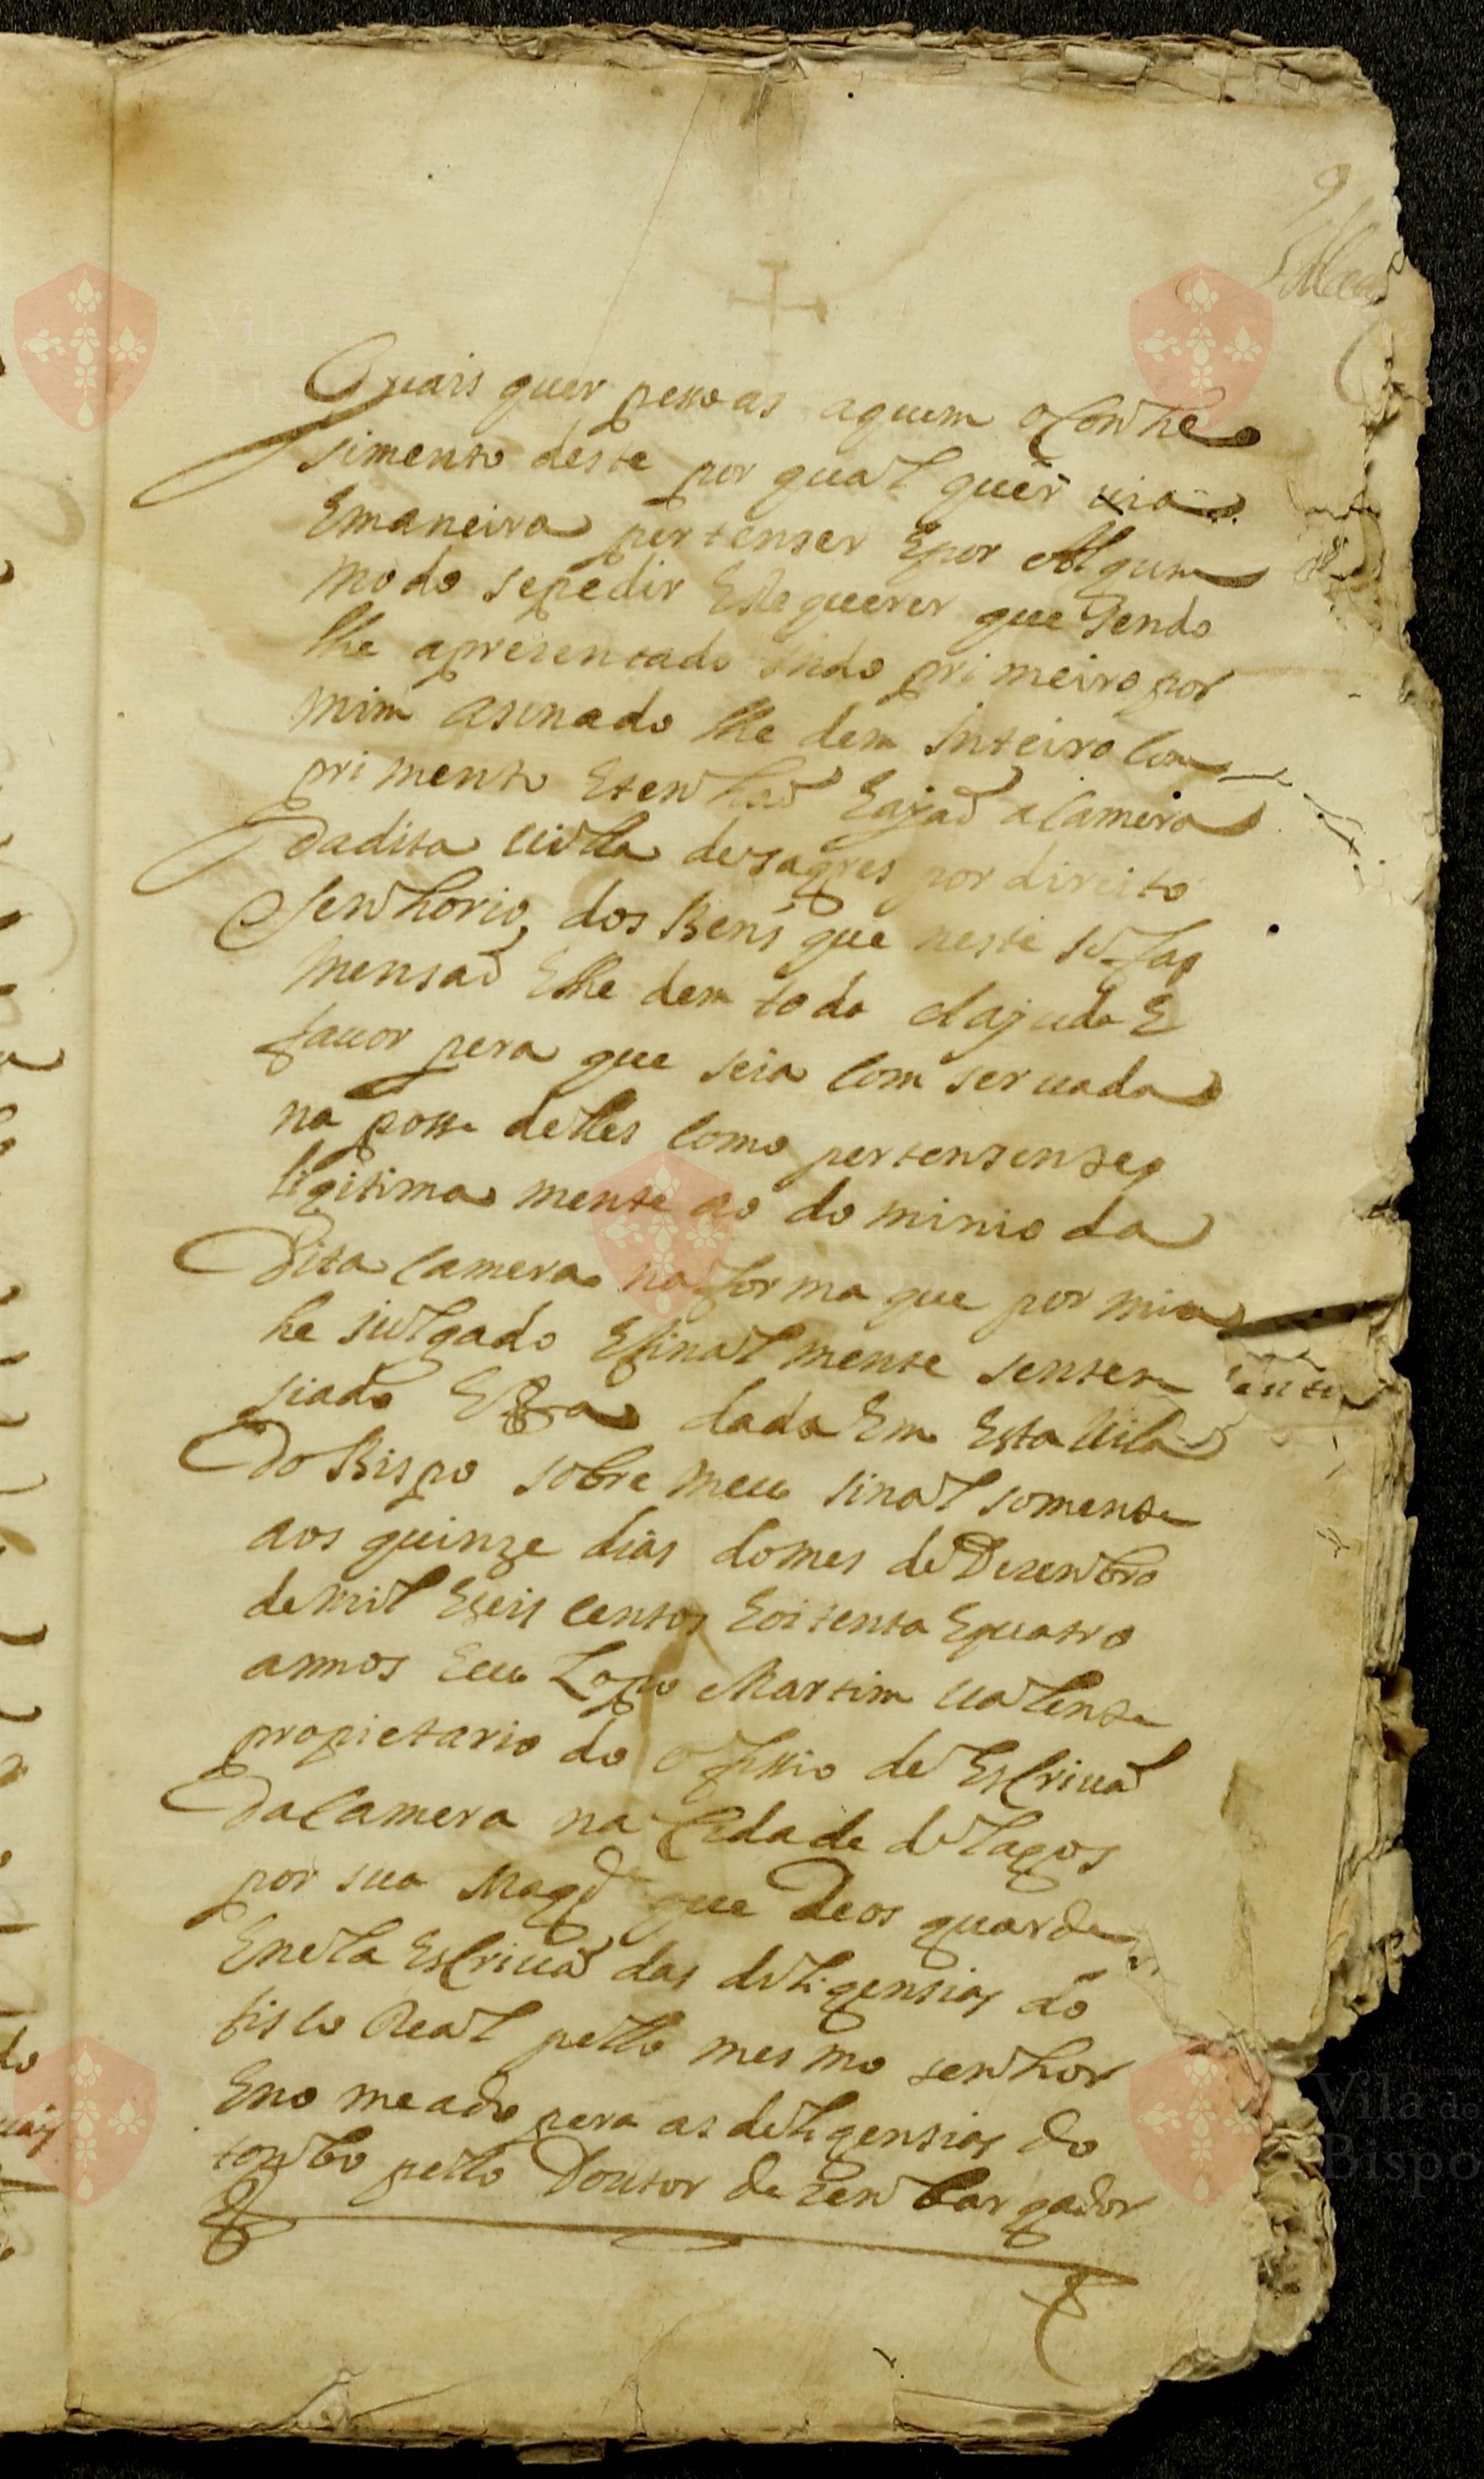 9
Quais quer pessoas aquem o Conhe
simento deste por qual quer uia
Emaneira pertenser Epor Algum
modo sepedir E Requerer que sendo
lhe aprezentado indo primeiro por
mim asinado lhe dem Inteiro Com
primento Etenhaõ Eajaõ aCamera
dadita uilla desagres por direito
senhorio dos Bens que neste se faz
mensaõ Elhe dem toda Aajuda E
fauor pera que seia Com seruada
na posse delles Como pertensentes
ligitima mente ao dominio da
Dita Camera na forma que por mim
he julgado Efinal mente senten
siado Esta dada Em Esta uila
Do Bispo sobre meu sinal somente
aos quinze dias domes de Dezenbro
demil Eseis Centos Eoitenta Equatro
annos Eeu Lopo Martim ualente
propietario do offissio de EsCriuaõ
DaCamera na Cidade de lagos
por sua Magde que Deos guarde
Enella EsCriuaõ das deligensias do
fisco Real pello mesmo senhor
Eno meado pera as deligensias do
tonbo pello Doutor dezenbargador
Vila do
Bispo